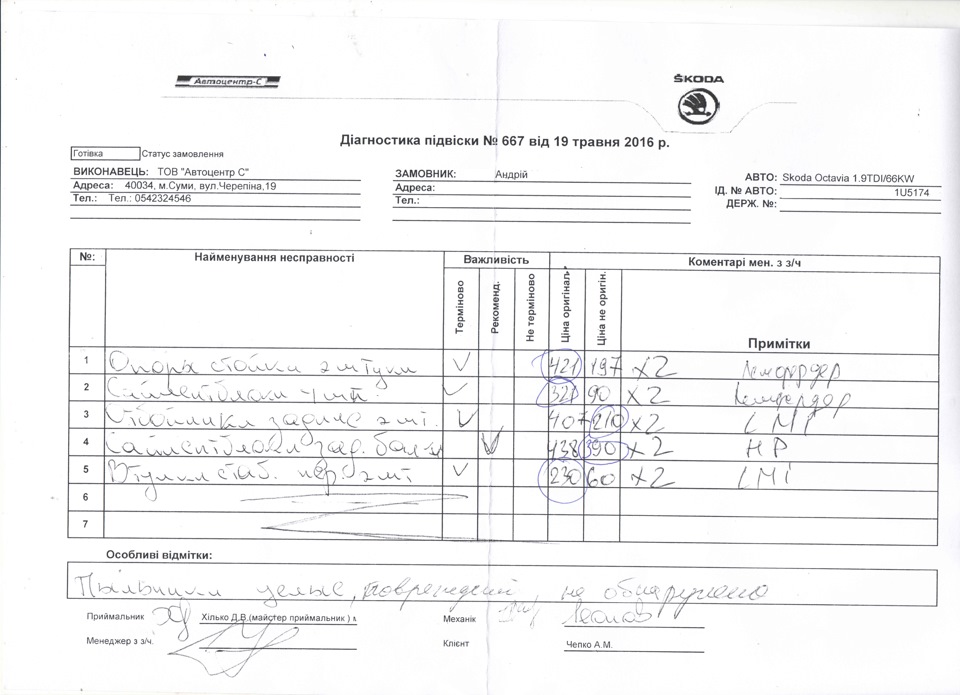 Автоцентр-С
ŠKODA
Діагностика підвіски № 667 від 19 травня 2016 р.
Готівка Статус замовлення
ВИКОНАВЕЦЬ: ТОВ "Автоцентр С"
Адреса: 40034, м.Суми, вул.Черепіна,19
Тел.: Тел.: 0542324546
ЗАМОВНИК: Андрій
Адреса:
Тел.:
АВТО: Skoda Octavia 1.9TDI/66KW
ІД. № АВТО: 1U5174
ДЕРЖ. №:
№: Найменування несправності Важливість Коментарі мен. з з/ч
Терміново Рекоменд. Не терміново Ціна оригінал. Ціна не оригін. Примітки
1 Опоры стойки 2 штуки V 421 197 x2 Лемфердер
2 Сайлентблоки 4 шт. V 321 90 x2 Лемфердер
3 Отбойники задние 2 шт. V 407 210 x2 LMI
4 Сайлентблоки зад. балки V 438 390 x2 HP
5 Втулки стаб. пер. 2 шт V 230 60 x2 LMI
6
7
Особливі відмітки:
Пыльники целые, повреждений не обнаружено
Приймальник Хілько Д.В.(майстер приймальник ) м
Механік
Менеджер з з/ч.
Клієнт Чепко А.М.